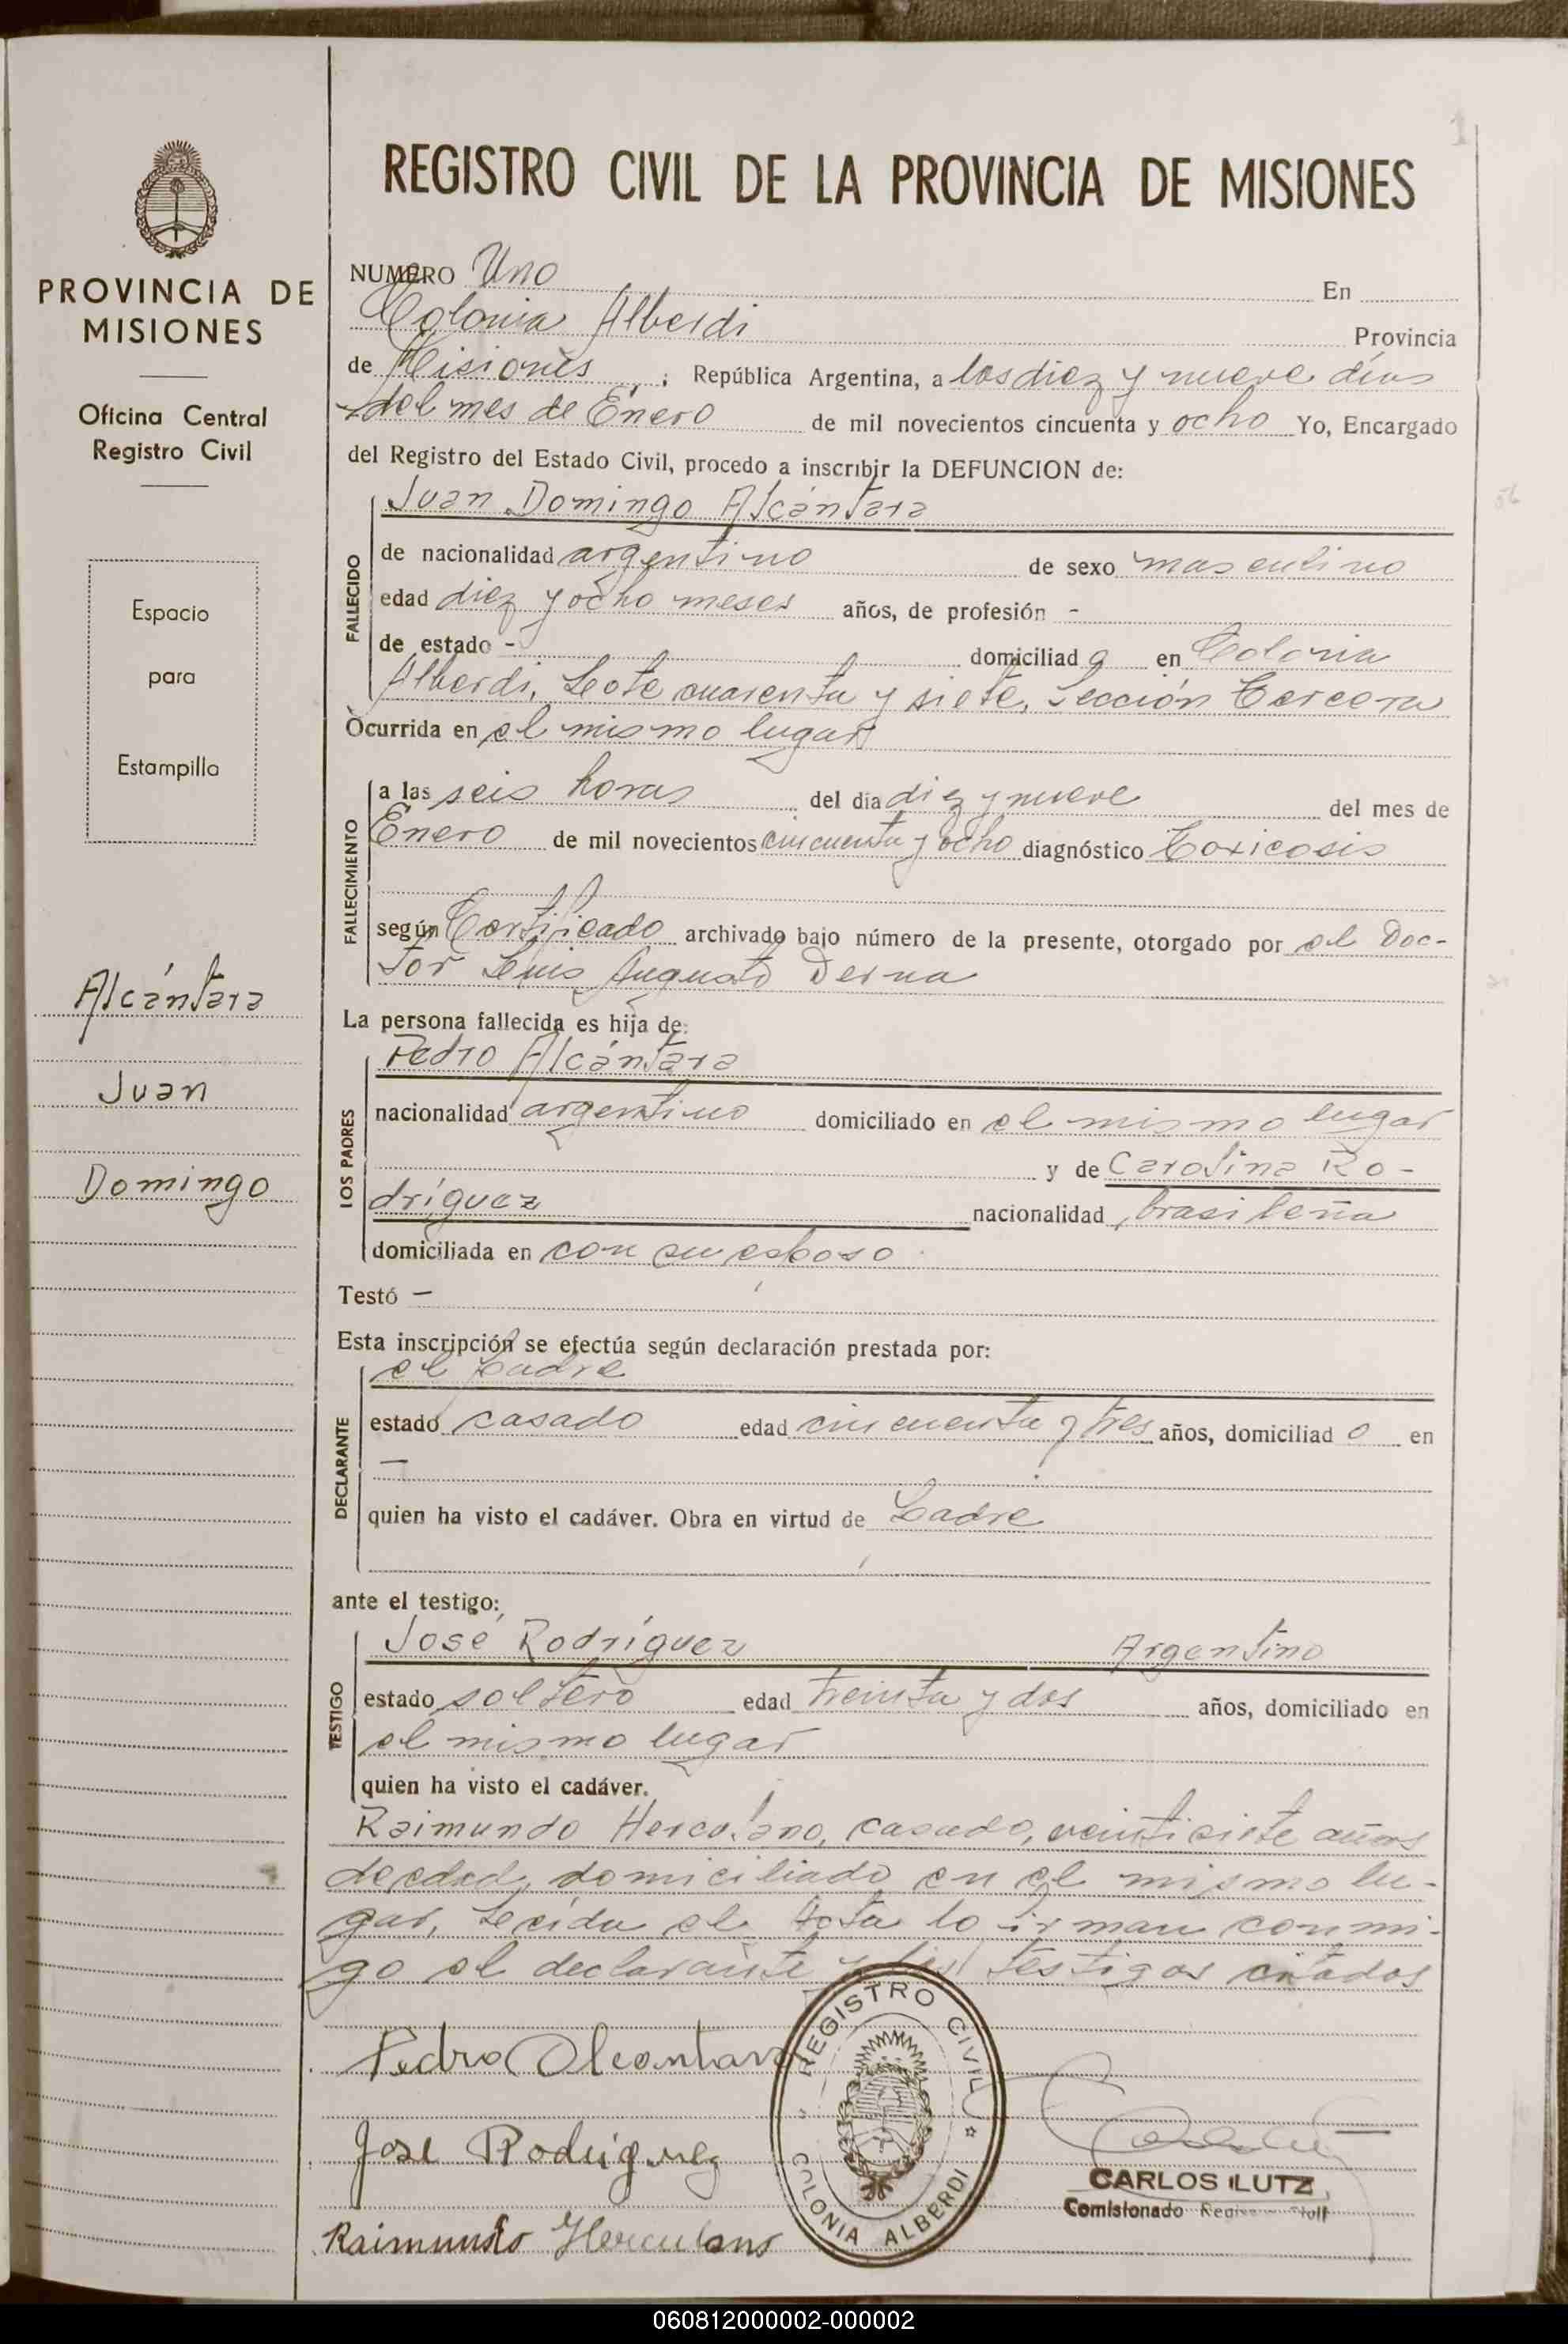 1
REGISTRO CIVIL DE LA PROVINCIA DE MISIONES
PROVINCIA DE
MISIONES
Oficina Central
Registro Civil
Espacio
para
Estampilla
Alcántara
Juan
Domingo
NUMERO Uno En
Colonia Alberdi Provincia
de Misiones ; República Argentina, a los diez y nueve días
del mes de Enero de mil novecientos cincuenta y ocho Yo, Encargado
del Registro del Estado Civil, procedo a inscribir la DEFUNCION de:
Juan Domingo Alcántara
FALLECIDO
de nacionalidad argentino de sexo masculino
edad diez y ocho meses años, de profesión -
de estado - domiciliad o en Colonia
Alberdi, Lote cuarenta y siete, Sección Tercera
Ocurrida en el mismo lugar
FALLECIMIENTO
a las seis horas del día diez y nueve del mes de
Enero de mil novecientos cincuenta y ocho diagnóstico Toxicosis
según Certificado archivado bajo número de la presente, otorgado por el Doc-
tor Luis Augusto Derna
La persona fallecida es hija de:
LOS PADRES
Pedro Alcántara
nacionalidad argentino domiciliado en el mismo lugar
y de Carolina Ro-
dríguez nacionalidad brasileña
domiciliada en con su esposo
Testó -
Esta inscripción se efectúa según declaración prestada por:
el Padre
DECLARANTE
estado casado edad cincuenta y tres años, domiciliad o en
-
quien ha visto el cadáver. Obra en virtud de Padre
ante el testigo:
TESTIGO
José Rodríguez Argentino
estado soltero edad treinta y dos años, domiciliado en
el mismo lugar
quien ha visto el cadáver.
Raimundo Herculano, casado, veintisiete años
de edad, domiciliado en el mismo lu-
gar, Leida el Acta lo firman conmi-
go el declarante y los testigos citados
Pedro Alcantara
Jose Rodriguez
Raimundo Herculano
REGISTRO CIVIL
COLONIA ALBERDI
CARLOS LUTZ
Comisionado
060812000002-000002